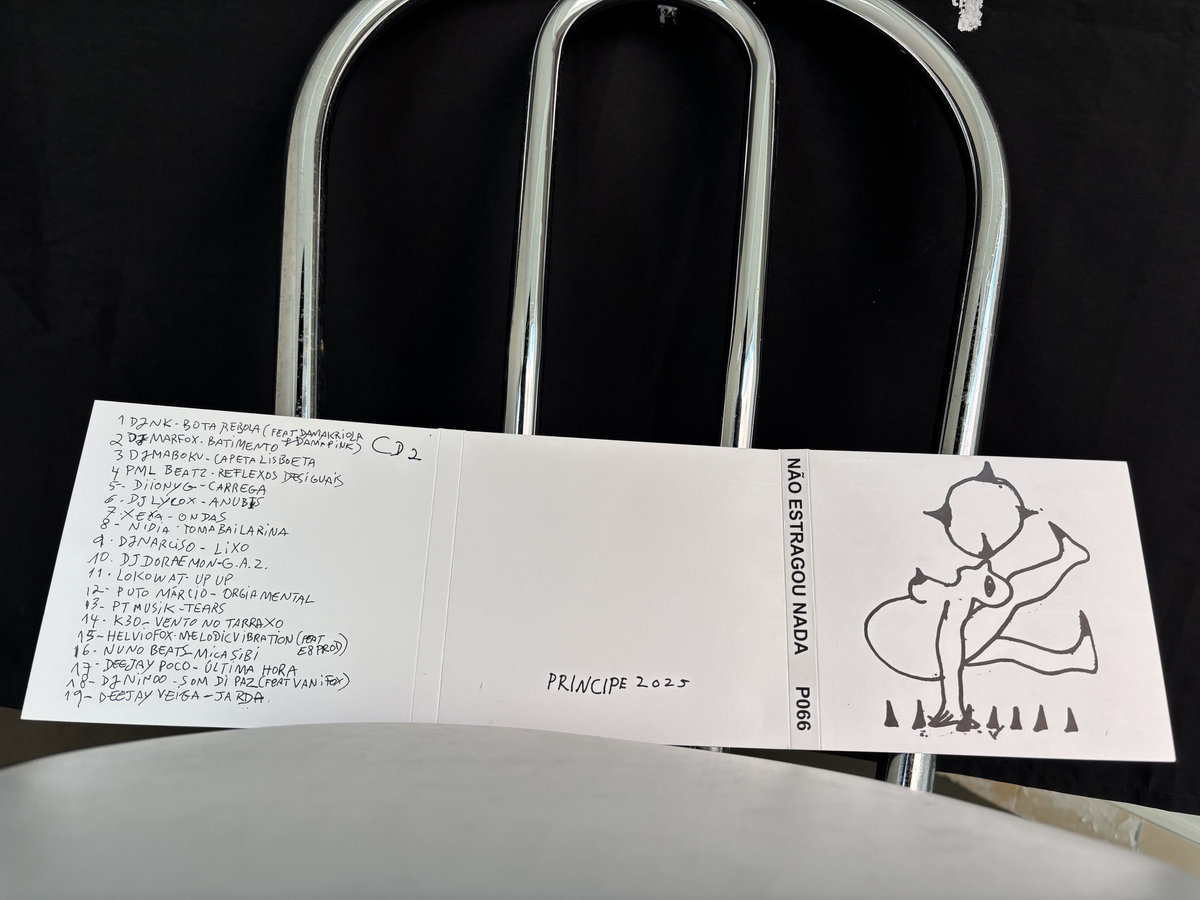 1 DJ NK - BOTA REBOLA (FEAT DAMA KRIOLA
& DAMA PINK)
2 DJ MARFOX - BATIMENTO
CD2
3 DJ MABOKU - CAPETA LISBOETA
4 PML BEATZ - REFLEXOS DESIGUAIS
5 - DIIONY G - CARREGA
6 - DJ LYCOX - ANUBIS
7 - XEXA - ONDAS
8 - NIDIA - TOMA BAILARINA
9 - DJ NARCISO - LIXO
10. DJ DORAEMON - G.A.Z.
11 - LOKOWAT - UP UP
12 - PUTO MÁRCIO - ORGIA MENTAL
13 - PT MUSIK - TEARS
14 - K30 - VENTO NO TARRAXO
15 - HELVIOFOX - MELODIC VIBRATION (FEAT
E8PROD)
16 - NUNO BEATS - MICASIBI
17 - DEEJAY POCO - ÚLTIMA HORA
18 - DJ NINOO - SOM DI PAZ (FEAT VANIFOX)
19 - DEEJAY VEIGA - JARDA.
PRINCIPE 2025
NÃO ESTRAGOU NADA P066